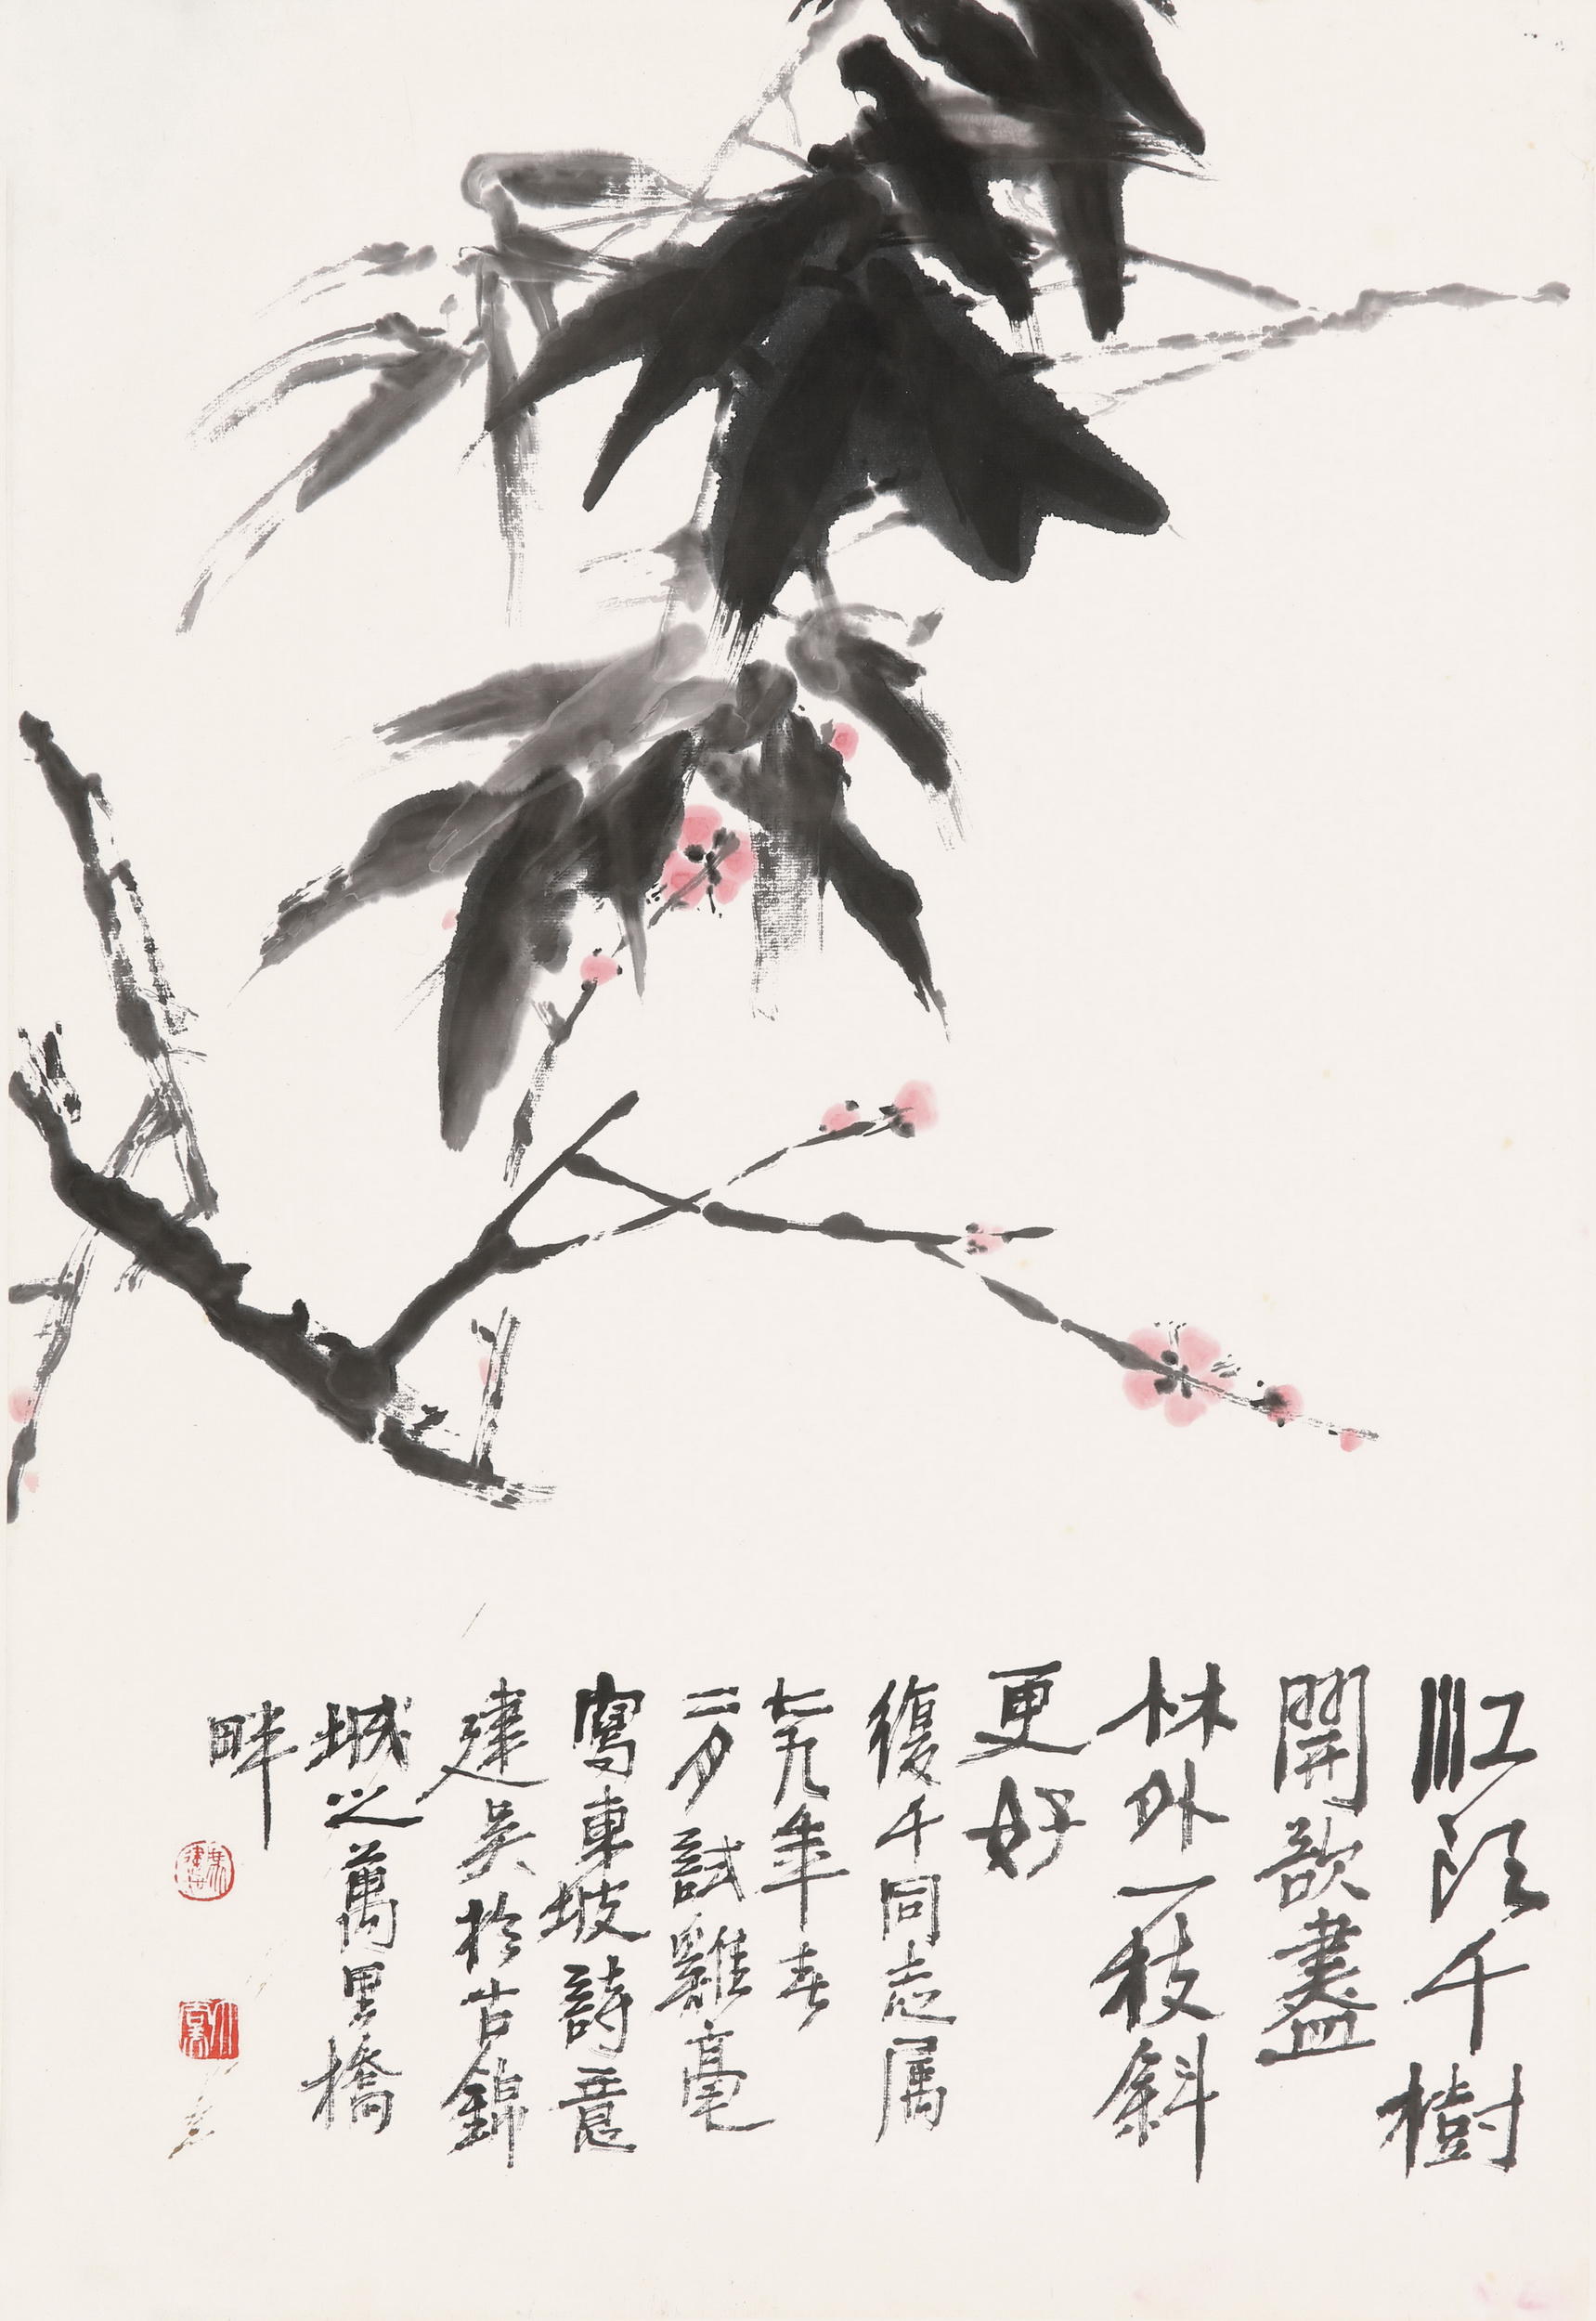 江頭千樹
開欲盡
林外一枝斜
更好
復千同志属
七九年春
二月試雞毫
寫東坡詩意
建吴於古錦
城之萬里橋
畔